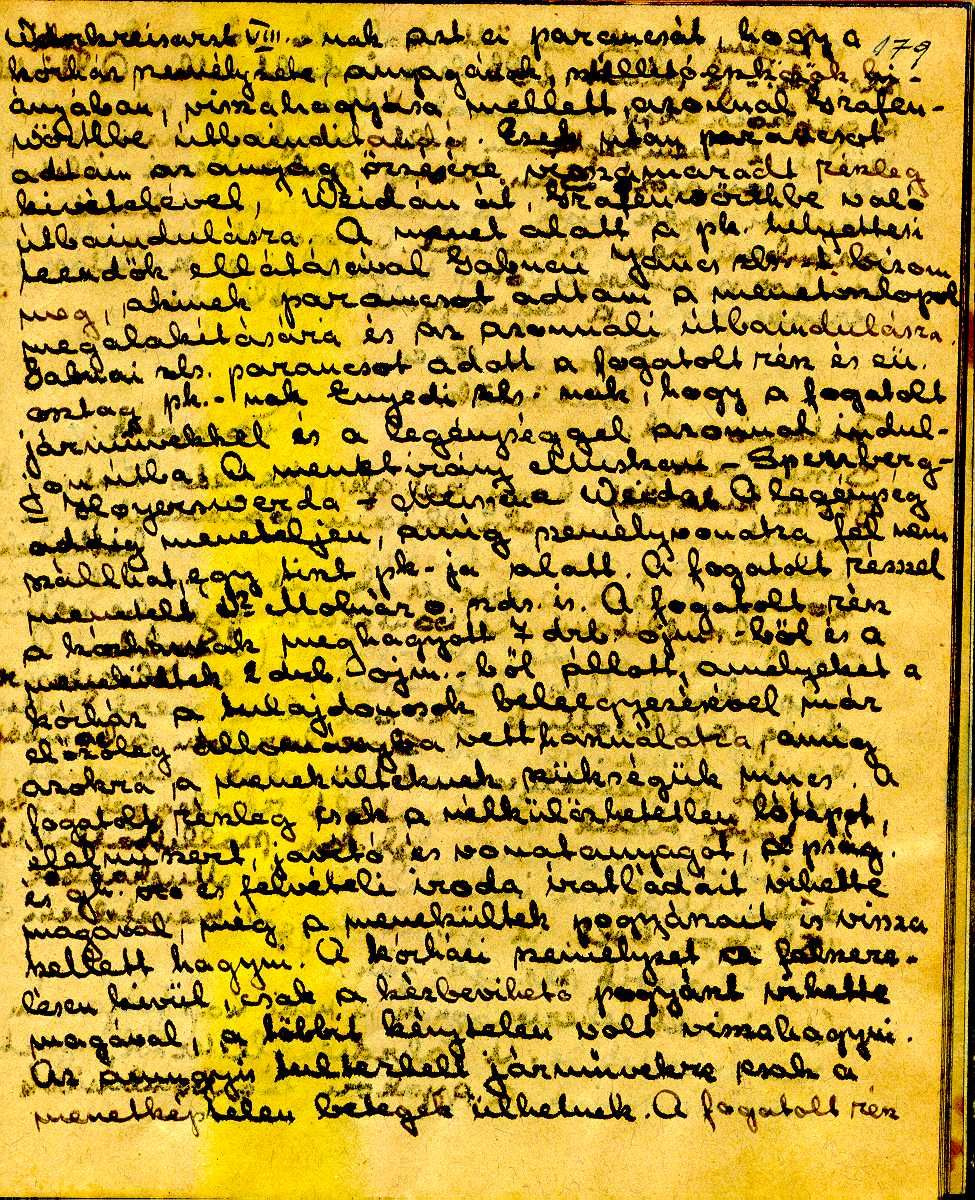 Wehrkreisarzt VIII.-nak azt a parancsát, hogy a 179
kórház személyzete, anyagának, szállítóeszközök hi-
ányában, visszahagyása mellett azonnal Grafen-
wöhrbe útbaindítandó. Ezek után parancsot
adtam az anyag őrzésére visszamaradt részleg
kivételével, Weidán át, Grafenwörthbe való
útbaindulásra. A menet alatt a pk. helyettesi
teendők ellátásával János szls.-t bízom
meg, akinek parancsot adtam a menetoszlopok
megalakítására és az azonnali útbaindulásra.
szls. parancsot adott a fogatolt rész és eü.
osztag pk.-nak Enyedi szls.-nak, hogy a fogatolt
járművekkel és a legénységgel azonnal indul-
jon útba. A menetirány Muskau - Spremberg -
Hoyerswerda - Meissen a Weida. A legénység
addig meneteljen, amíg személyvonatra fel nem
szállhat, egy tiszt pk-ja alatt. A fogatolt résszel
menetelt Dr Molnár o. szds. is. A fogatolt rész
a kórháznak meghagyott 7 drb. ojm.-ből és a
menekültek 2 drb. ojm.-ből állott, amelyeket a
kórház a tulajdonosok beleegyezésével már
előzőleg állományba vett használatra, amíg
azokra a menekülteknek szükségük nincs. A
fogatolt részleg csak a nélkülözhetetlen lótápot,
élelmiszert, javító és vonatanyagot, a psság.
és gh. és felvételi iroda iratládáit vihette
magával, még a menekültek poggyászait is vissza
kellett hagyni. A kórházi személyzet a felszere-
lésen kívül, csak a kézbevihető poggyászt vihette
magával, a többit kénytelen volt visszahagyni.
Az amugyis túlterhelt járművekre csak a
menetképtelen betegek ülhetnek. A fogatolt rész